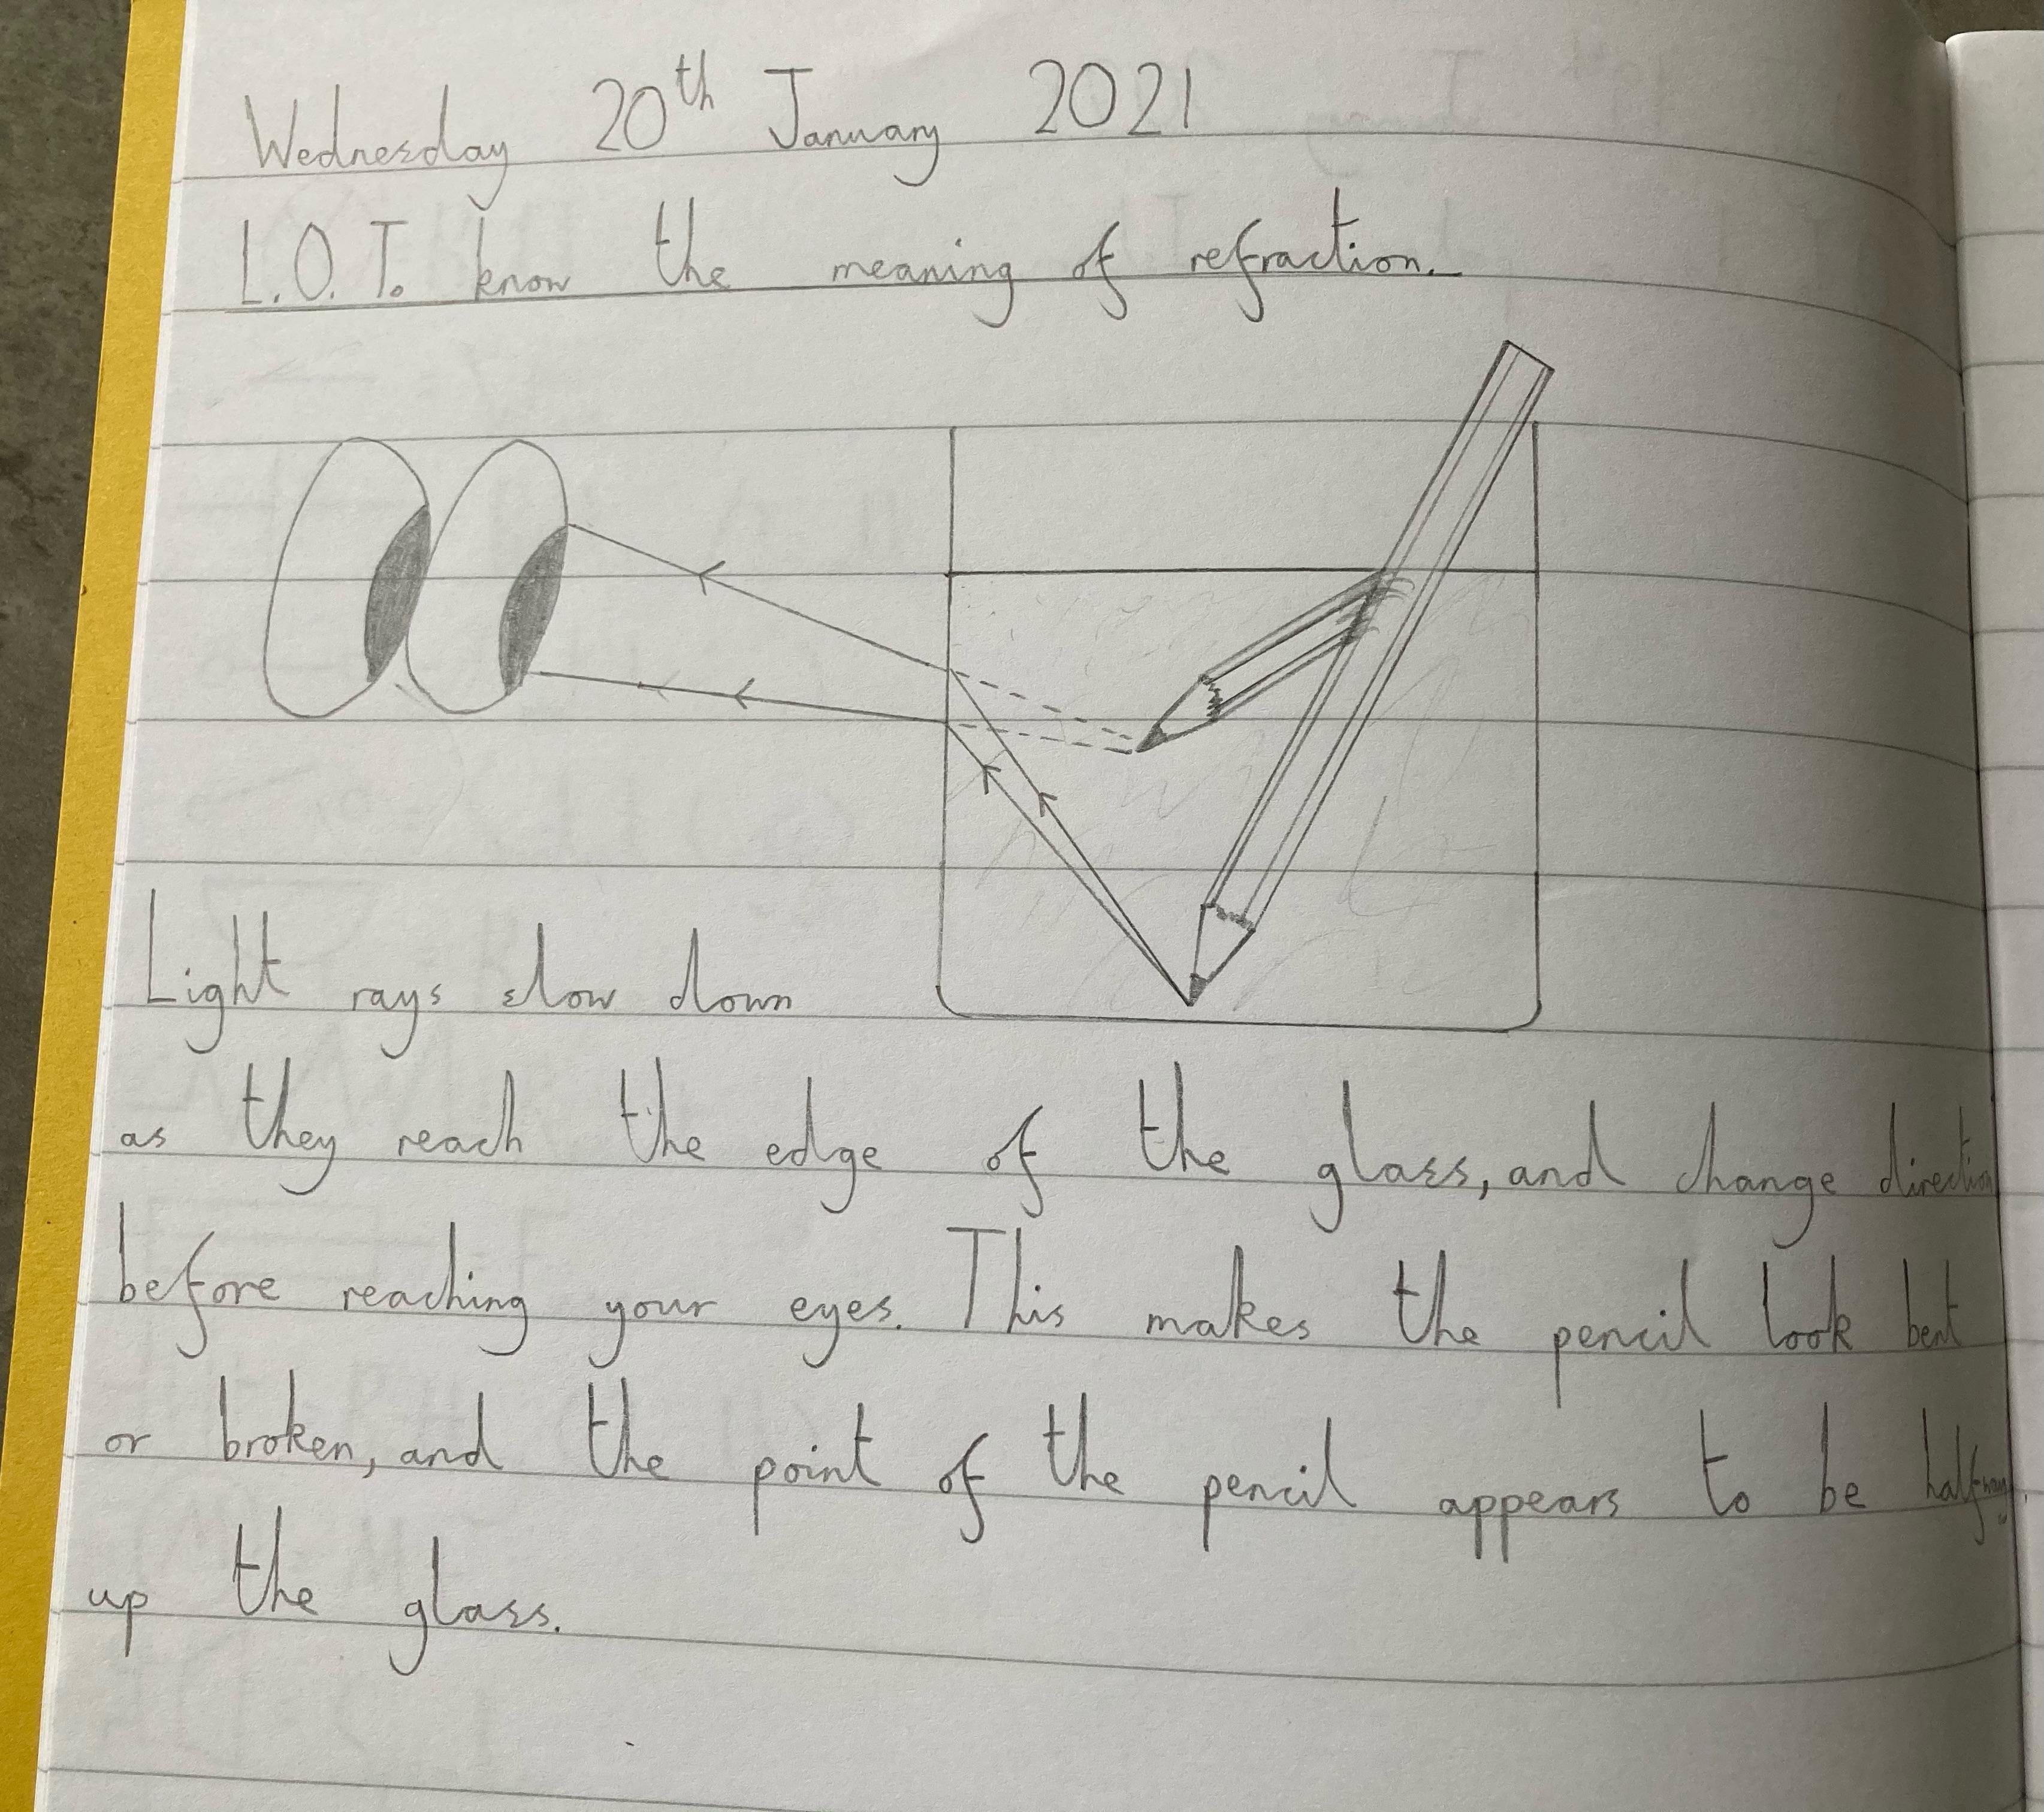 Wednesday 20th January 2021
L.O.T. know the meaning of refraction.
Light rays slow down
as they reach the edge of the glass, and change direction
before reaching your eyes. This makes the pencil look bent
or broken, and the point of the pencil appears to be halfway
up the glass.